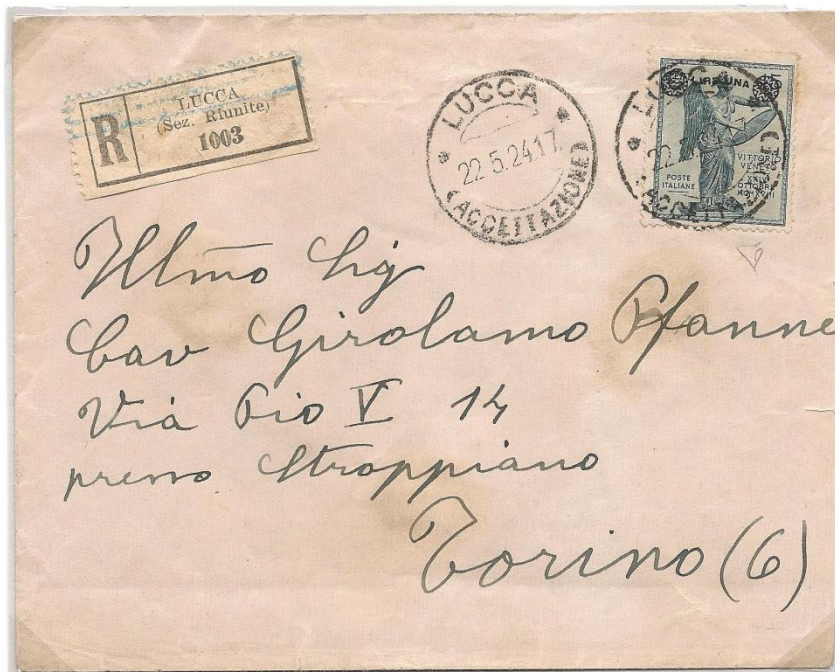 R
LUCCA
(Sez. Riunite)
1003
LUCCA
22.5.24.17
(ACCETTAZIONE)
LIRE UNA
LUCCA
(ACCETTAZIONE)
POSTE
ITALIANE
VITTORIO
VENETO
XXIV
OTTOBRE
Illmo Sig
Cav Girolamo Pfanne
Via Pio V 14
presso Stroppiano
Torino (6)